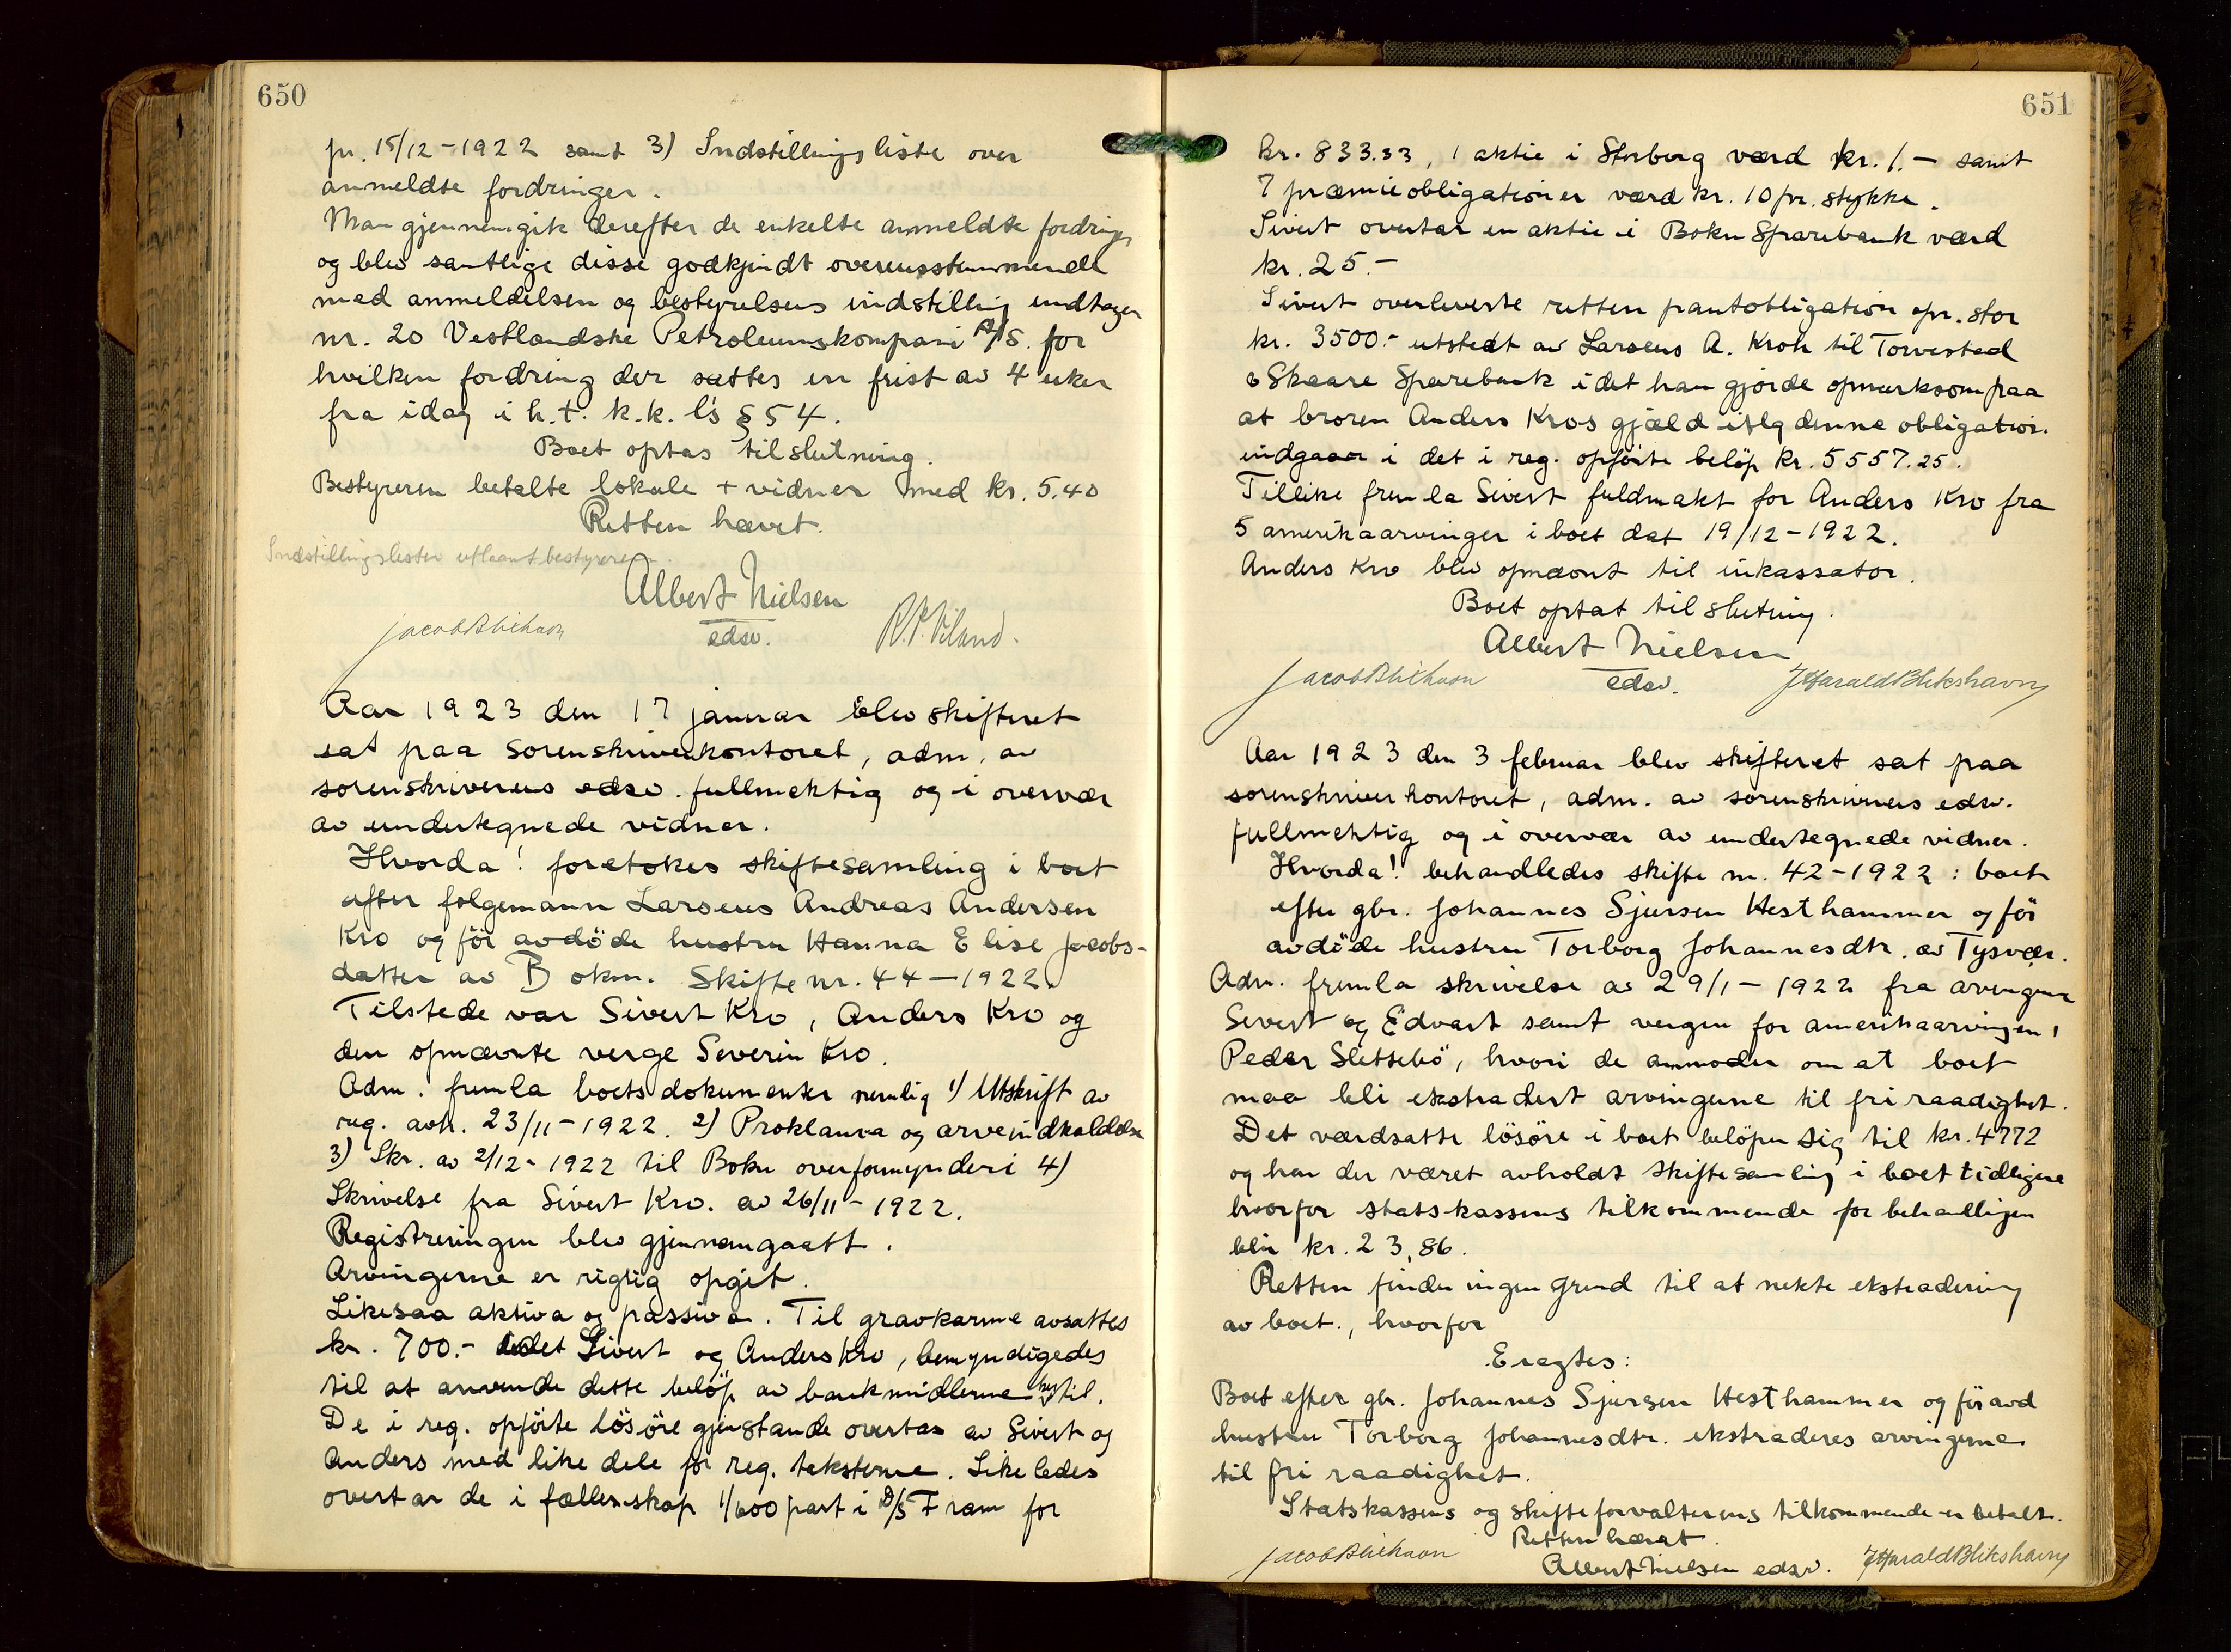 650
pr. 15/12-1922 samt 3) Indstillingsliste over
anmeldte fordringer.
Man gjennemgik derefter de enkelte anmeldte fordringer
og blev samtlige disse godkjendt overensstemmende
med anmeldelsen og bestyrelsens indstilling undtagen
nr. 20 Vestlandske Petroleumskompani A/S. for
hvilken fordring der sattes en frist av 4 uker
fra idag i h.t. k.k. l's § 54.
Boet optas til slutning.
Bestyreren betalte lokale + vidner med kr. 5.40
Retten hævet.
Indstillingslisten utlaant bestyreren.
Albert Nielsen
Jacob Blikhavn edsv.
Aar 1923 den 17 januar blev skifteret
sat paa sorenskriverkontoret, adm. av
sorenskriverens edsv. fullmektig og i overvær
av undertegnede vidner.
Hvorda! foretokes skiftesamling i boet
efter folgemann Larseus Andreas Andersen
Kro og för avdöde hustru Hanna Elise Jacobs-
datter av Bokn. Skifte nr. 44-1922
Tilstede var Sivert Kro, Anders Kro og
den opnævnte verge Severin Kro.
Adm. fremla boets dokumenter nemlig 1) Utskrift av
reg. avh. 23/11-1922. 2) Proklama og arveindkaldelse
3) Skr. av 2/12-1922 til Bokn overformynderi 4)
Skrivelse fra Sivert Kro. av 26/11-1922.
Registreringen blev gjennemgaatt.
Arvingerne er rigtig opgit.
Likesaa aktiva og passiva. Til gravkarme avsattes
kr. 700.- idet Sivert og Anders Kro, bemyndigedes
til at anvende dette belöp av bankmidlerne hertil.
De i reg. opförte lösöre gjenstande overtas av Sivert og
Anders med like dele for reg. taksterne. Likeledes
overtar de i fællesskap 1/600 part i D/S Fram for
651
kr. 833.33, 1 aktie i Storberg værd kr. 1.- samt
7 præmieobligationer værd kr. 10 pr. stykke.
Sivert overtar en aktie i Bokn Sparebank værd
kr. 25.-
Sivert overleverte retten pantobligation opr. stor
kr. 3500.- utstedt av Larseus A. Kroh til Torvestad
& Skaare Sparebank idet han gjorde opmerksom paa
at broren Anders Kros gjæld iflg denne obligation
indgaar i det i reg. opförte belöp kr. 5557.25.
Tillike fremla Sivert fuldmakt for Anders Kro fra
5 amerikaarvinger i boet dat 19/12-1922.
Anders Kro blev opnævnt til inkassator.
Boet optat til slutning.
Albert Nielsen
Jacob Blikhavn edsv. J Harald Blikshavn
Aar 1923 den 3 februar blev skifteret sat paa
sorenskriverkontoret, adm. av sorenskriverens edsv.
fullmektig og i overvær av undertegnede vidner.
Hvorda! behandledes skifte nr. 42-1922: boet
efter gbr. Johannes Sjursen Hesthammer og för
avdöde hustru Torborg Johannesdtr. av Tysvær.
Adm. fremla skrivelse av 29/1-1922 fra arvingene
Sivert og Edvart samt vergen for amerikaarvingen,
Peder Slettebö, hvori de anmoder om at boet
maa bli ekstradert arvingerne til fri raadighet.
Det værdsatte lösöre i boet belöper sig til kr. 4772
og har der været avholdt skiftesamling i boet tidligere
hvorfor statskassens tilkommende for behandlingen
blir kr. 23,86.
Retten finder ingen grund til at nekte ekstradering
av boet., hvorfor
Eragtes:
Boet efter gbr. Johannes Sjursen Hesthammer og för avd
hustru Torborg Johannesdtr. ekstraderes arvingerne
til fri raadighet.
Statskassens og skifteforvalterens tilkommende er betalt.
Retten hævet.
Jacob Blikhavn Albert Nielsen edsv. J Harald Blikshavn